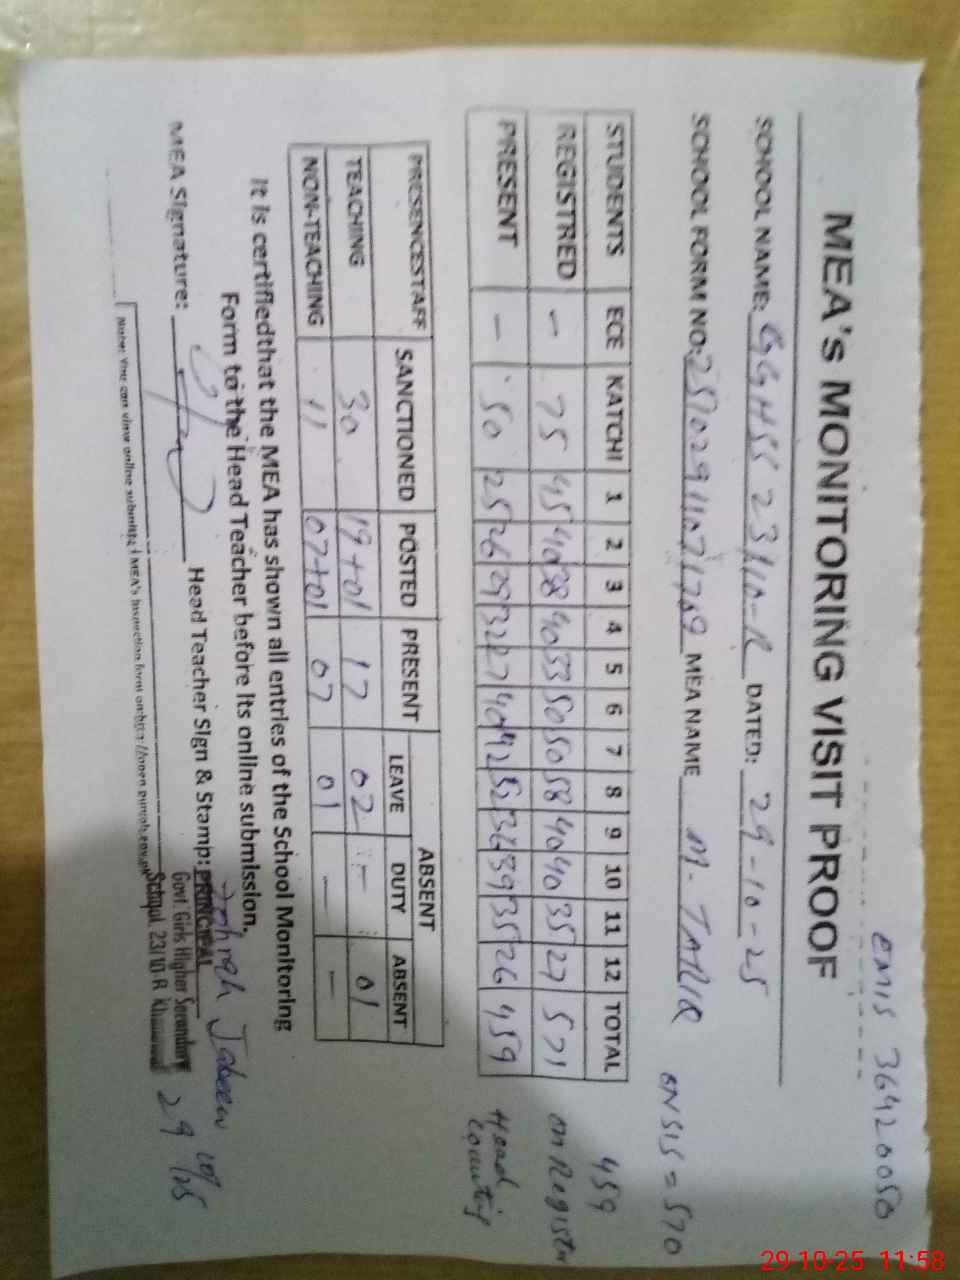 EMIS 36420050
MEA's MONITORING VISIT PROOF
SCHOOL NAME: GGHSS 23/10-R DATED: 29-10-25
SCHOOL FORM NO: MEA NAME M. TARIQ
SNSIS = 570
STUDENTS ECE KATCHI 1 2 3 4 5 6 7 8 9 10 11 12 TOTAL
459
REGISTRED - 75 45 40 38 40 33 50 50 58 40 40 35 27 571
on Register
PRESENT - 50 25 26 29 32 27 40 42 52 36 39 35 26 459
Head counting
PRESENCESTAFF SANCTIONED POSTED PRESENT ABSENT
LEAVE DUTY ABSENT
TEACHING 30 19+01 17 02 - 01
NON-TEACHING 11 07+01 07 01 - -
It is certifiedthat the MEA has shown all entries of the School Monitoring
Form to the Head Teacher before its online submission.
MEA Signature: Head Teacher Sign & Stamp: Jabeen
PRINCIPAL
Govt. Girls Higher Secondary
School. 23/10-R
29/10/25
Note: You can view online submitted MEA's inspection form on
29-10-25 11:58